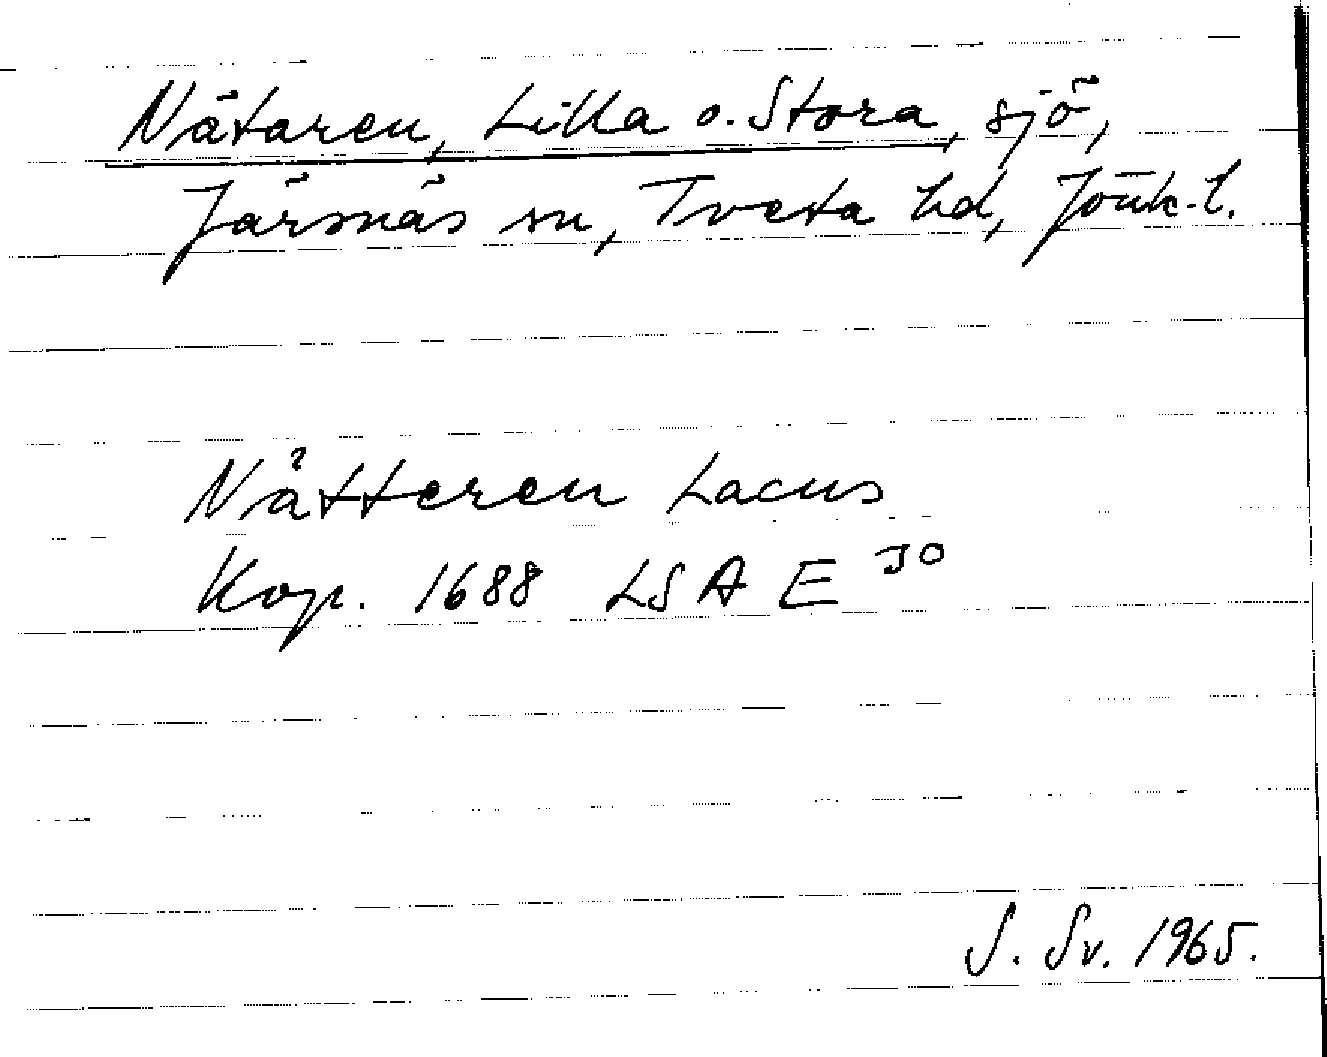 Nätaren, Lilla o. Stora, sjö,
Järsnäs sn, Tveta hd, Jönk. l.
Nätteren Lacus
Kop. 1688 LSA E 30
S. Sv. 1965.